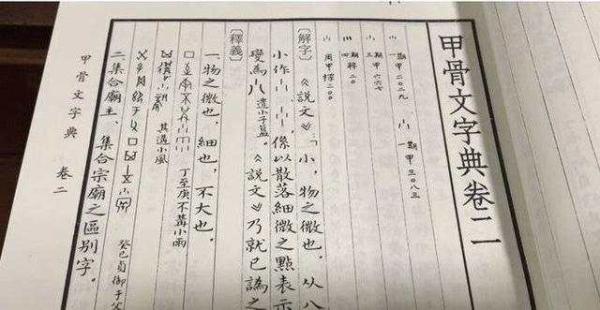 甲骨文字典卷二
一期 甲二〇二九 一期 甲三〇八三
三期 甲六六七
四 粹二〇
周甲 探二〇〇
〔解字〕《說文》：「小，物之微也。从八
小作 像以散落細微之點表示
變爲 遣小子𣪘。《說文》乃就已譌之
〔釋義〕
一、物之微也，細也，不大也。
丁至庚不冓小雨
其遘小風
癸巳貞御于父
二、集合廟主、集合宗廟之區別字。
甲骨文字典 卷二